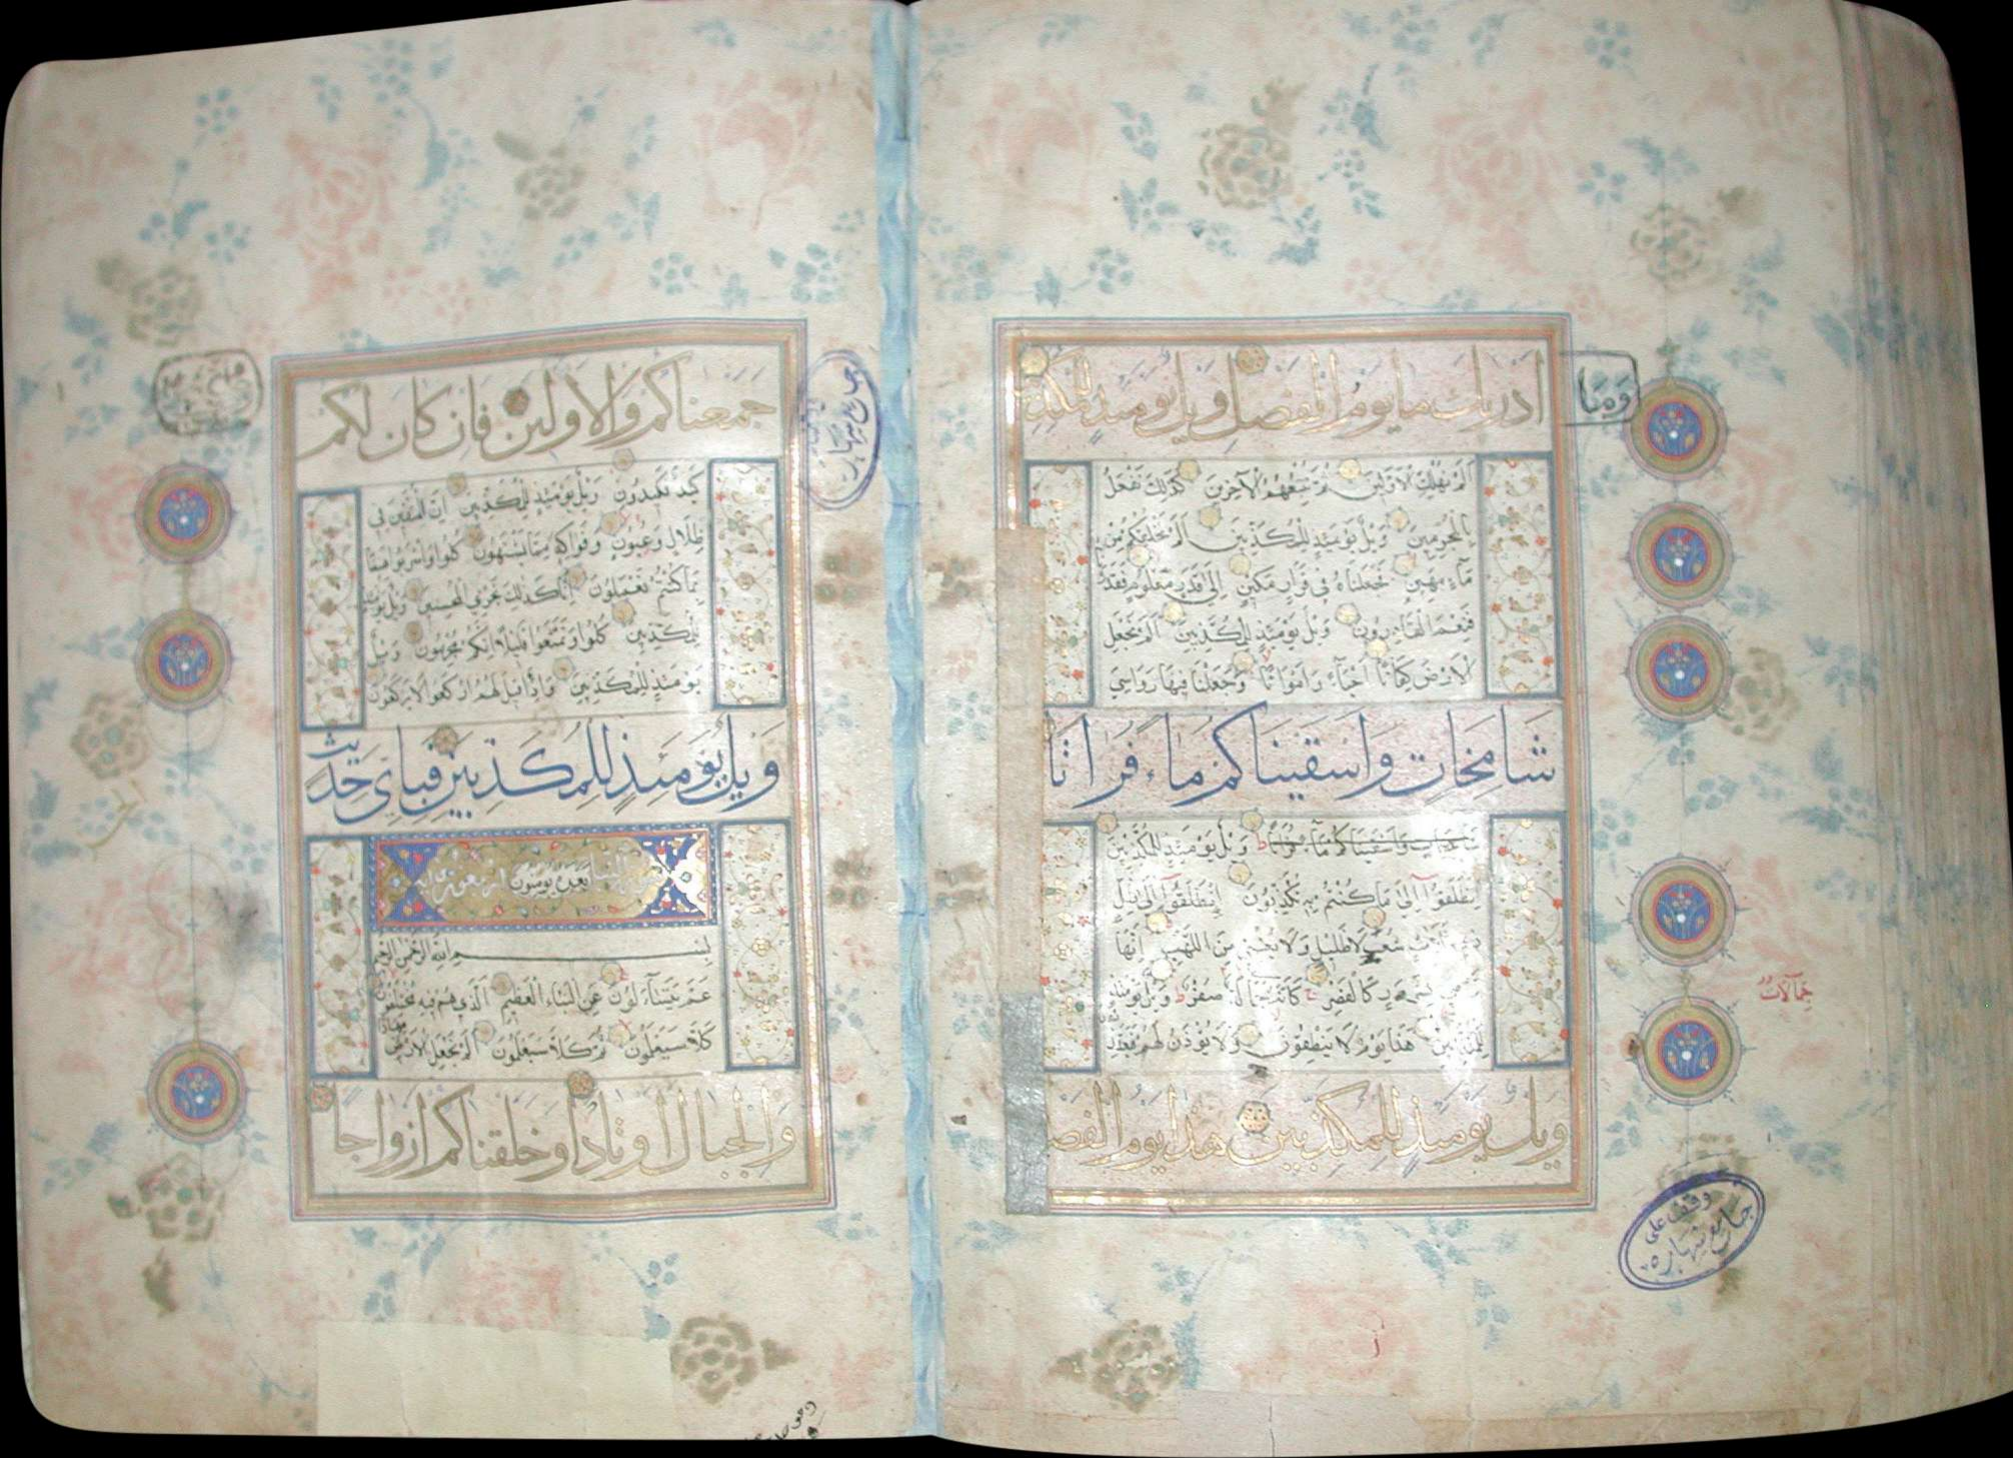 وَمَا
ادريك ما يوم الفصل ويل يومئذ للمكذبين
الم نهلك الاولين ثم نتبعهم الآخرين كذلك نفعل
بالمجرمين ويل يومئذ للمكذبين الم نخلقكم من
ماء مهين فجعلناه في قرار مكين الى قدر معلوم فقدرنا
فنعم القادرون ويل يومئذ للمكذبين الم نجعل
الارض كفاتا احياء وامواتا وجعلنا فيها رواسي
شامخات واسقيناكم ماء فراتا
شامخات واسقيناكم ماء فراتا ويل يومئذ للمكذبين
انطلقوا الى ما كنتم به تكذبون انطلقوا الى ظل
ذي ثلاث شعب لا ظليل ولا يغني من اللهب انها
بشرر كالقصر كانه جمالة صفر ويل يومئذ
جمالات
للمكذبين هذا يوم لا ينطقون ولا يؤذن لهم فيعتذرون
ويل يومئذ للمكذبين هذا يوم الفصل
وقف على
جامع شهاره
جمعناكم والاولين فان كان لكم
كيد فكيدون ويل يومئذ للمكذبين ان المتقين في
ظلال وعيون وفواكه مما يشتهون كلوا واشربوا هنيئا
بما كنتم تعملون انا كذلك نجزي المحسنين ويل يومئذ
للمكذبين كلوا وتمتعوا قليلا انكم مجرمون ويل
يومئذ للمكذبين واذا قيل لهم اركعوا لا يركعون
ويل يومئذ للمكذبين فباي حديث
بسم الله الرحمن الرحيم
عم يتساءلون عن النباء العظيم الذي هم فيه مختلفون
كلا سيعلمون ثم كلا سيعلمون الم نجعل الارض مهادا
والجبال اوتادا وخلقناكم ازواجا